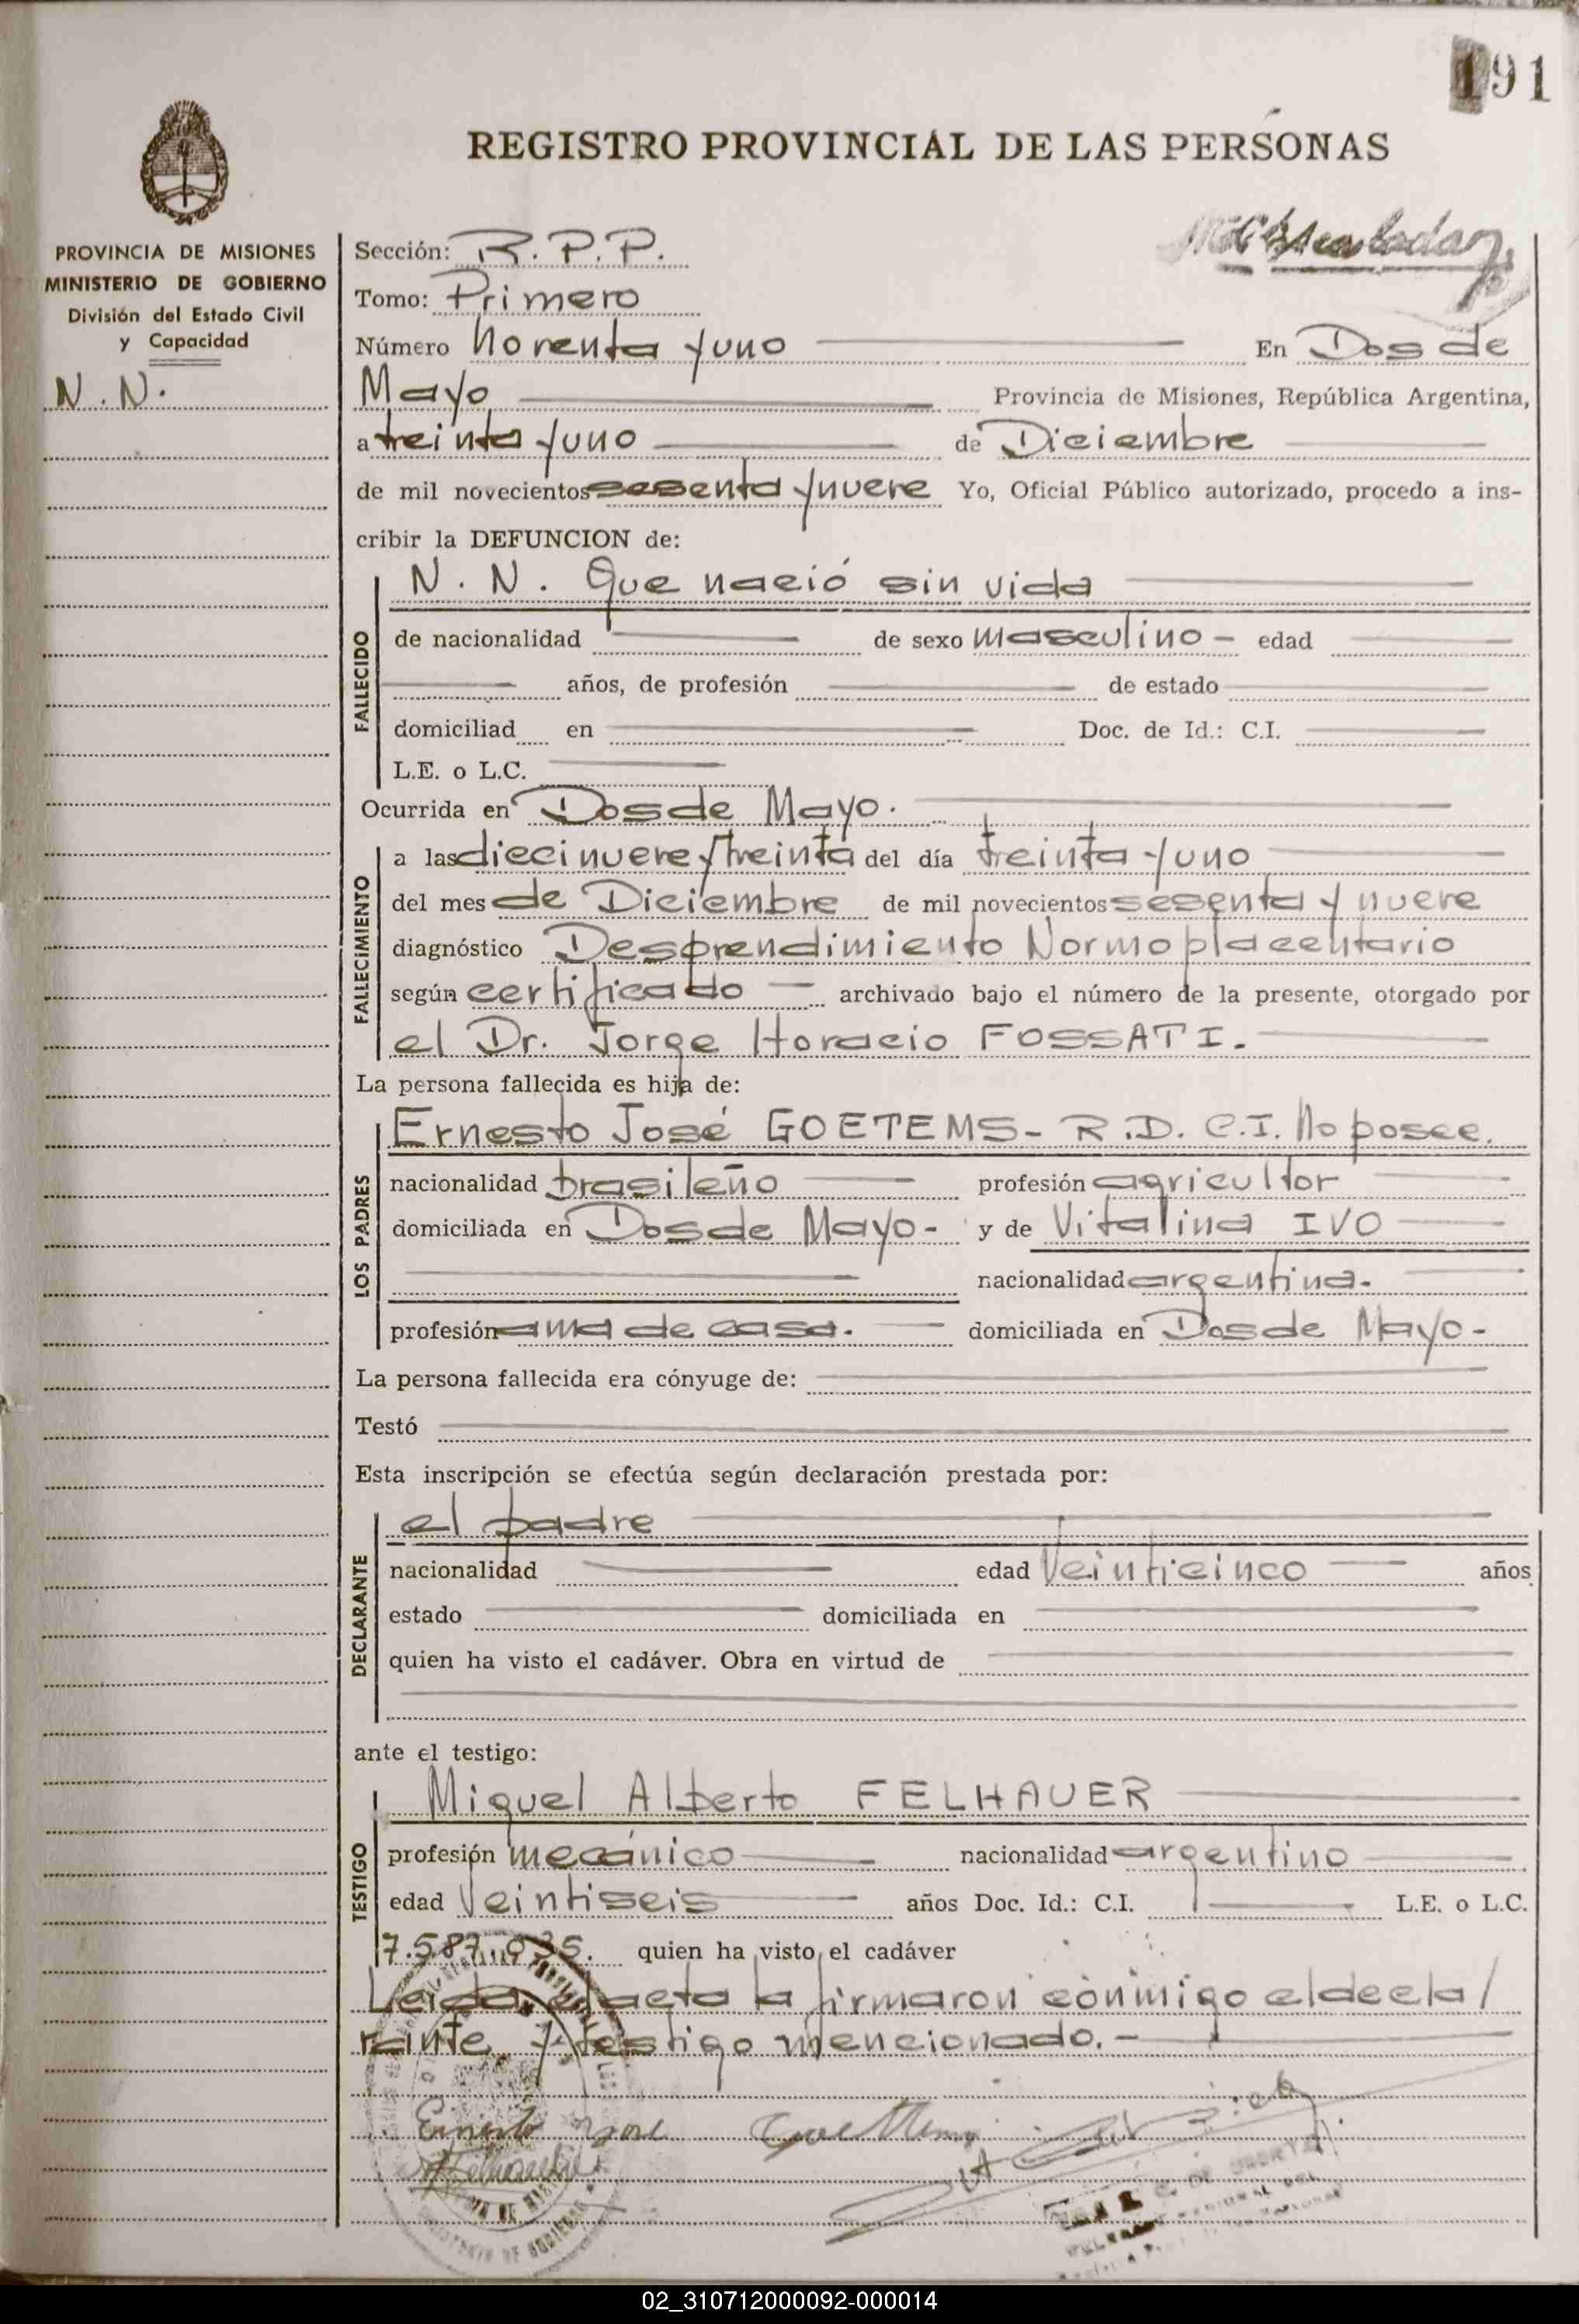 191
REGISTRO PROVINCIAL DE LAS PERSONAS
PROVINCIA DE MISIONES
MINISTERIO DE GOBIERNO
División del Estado Civil
y Capacidad
N. N.
Sección: R.P.P.
Tomo: Primero
Número Noventa y uno En Dos de
Mayo Provincia de Misiones, República Argentina,
a treinta y uno de Diciembre
de mil novecientos sesenta y nueve Yo, Oficial Público autorizado, procedo a ins-
cribir la DEFUNCION de:
FALLECIDO
N. N. Que nació sin vida
de nacionalidad de sexo masculino - edad
años, de profesión de estado
domiciliad en Doc. de Id.: C.I.
L.E. o L.C.
Ocurrida en Dos de Mayo.
FALLECIMIENTO
a las diecinueve y treinta del día treinta y uno
del mes de Diciembre de mil novecientos sesenta y nueve
diagnóstico Desprendimiento Normoplacentario
según certificado archivado bajo el número de la presente, otorgado por
el Dr. Jorge Horacio FOSSATI.
La persona fallecida es hija de:
LOS PADRES
Ernesto José GOETEMS - R.D. C.I. No posee.
nacionalidad brasileño profesión agricultor
domiciliada en Dos de Mayo - y de Vitalina IVO
nacionalidad argentina.
profesión ama de casa. domiciliada en Dos de Mayo -
La persona fallecida era cónyuge de:
Testó
Esta inscripción se efectúa según declaración prestada por:
DECLARANTE
el padre
nacionalidad edad Veinticinco años
estado domiciliada en
quien ha visto el cadáver. Obra en virtud de
ante el testigo:
TESTIGO
Miguel Alberto FELHAUER
profesión mecánico nacionalidad argentino
edad Veintiseis años Doc. Id.: C.I. L.E. o L.C.
7.587.035. quien ha visto el cadáver
Leida el acta la firmaron conmigo el decla/
rante y testigo mencionado.-
Ernesto Jose
02_310712000092-000014